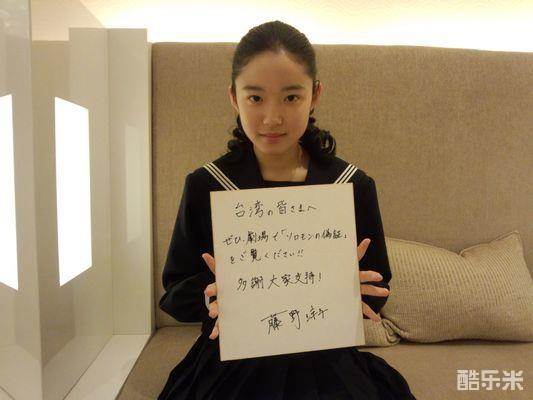 台湾の皆さまへ
ぜひ劇場で「ソロモンの偽証」
をご覧ください!!
多謝大家支持!
藤野涼子
酷乐米